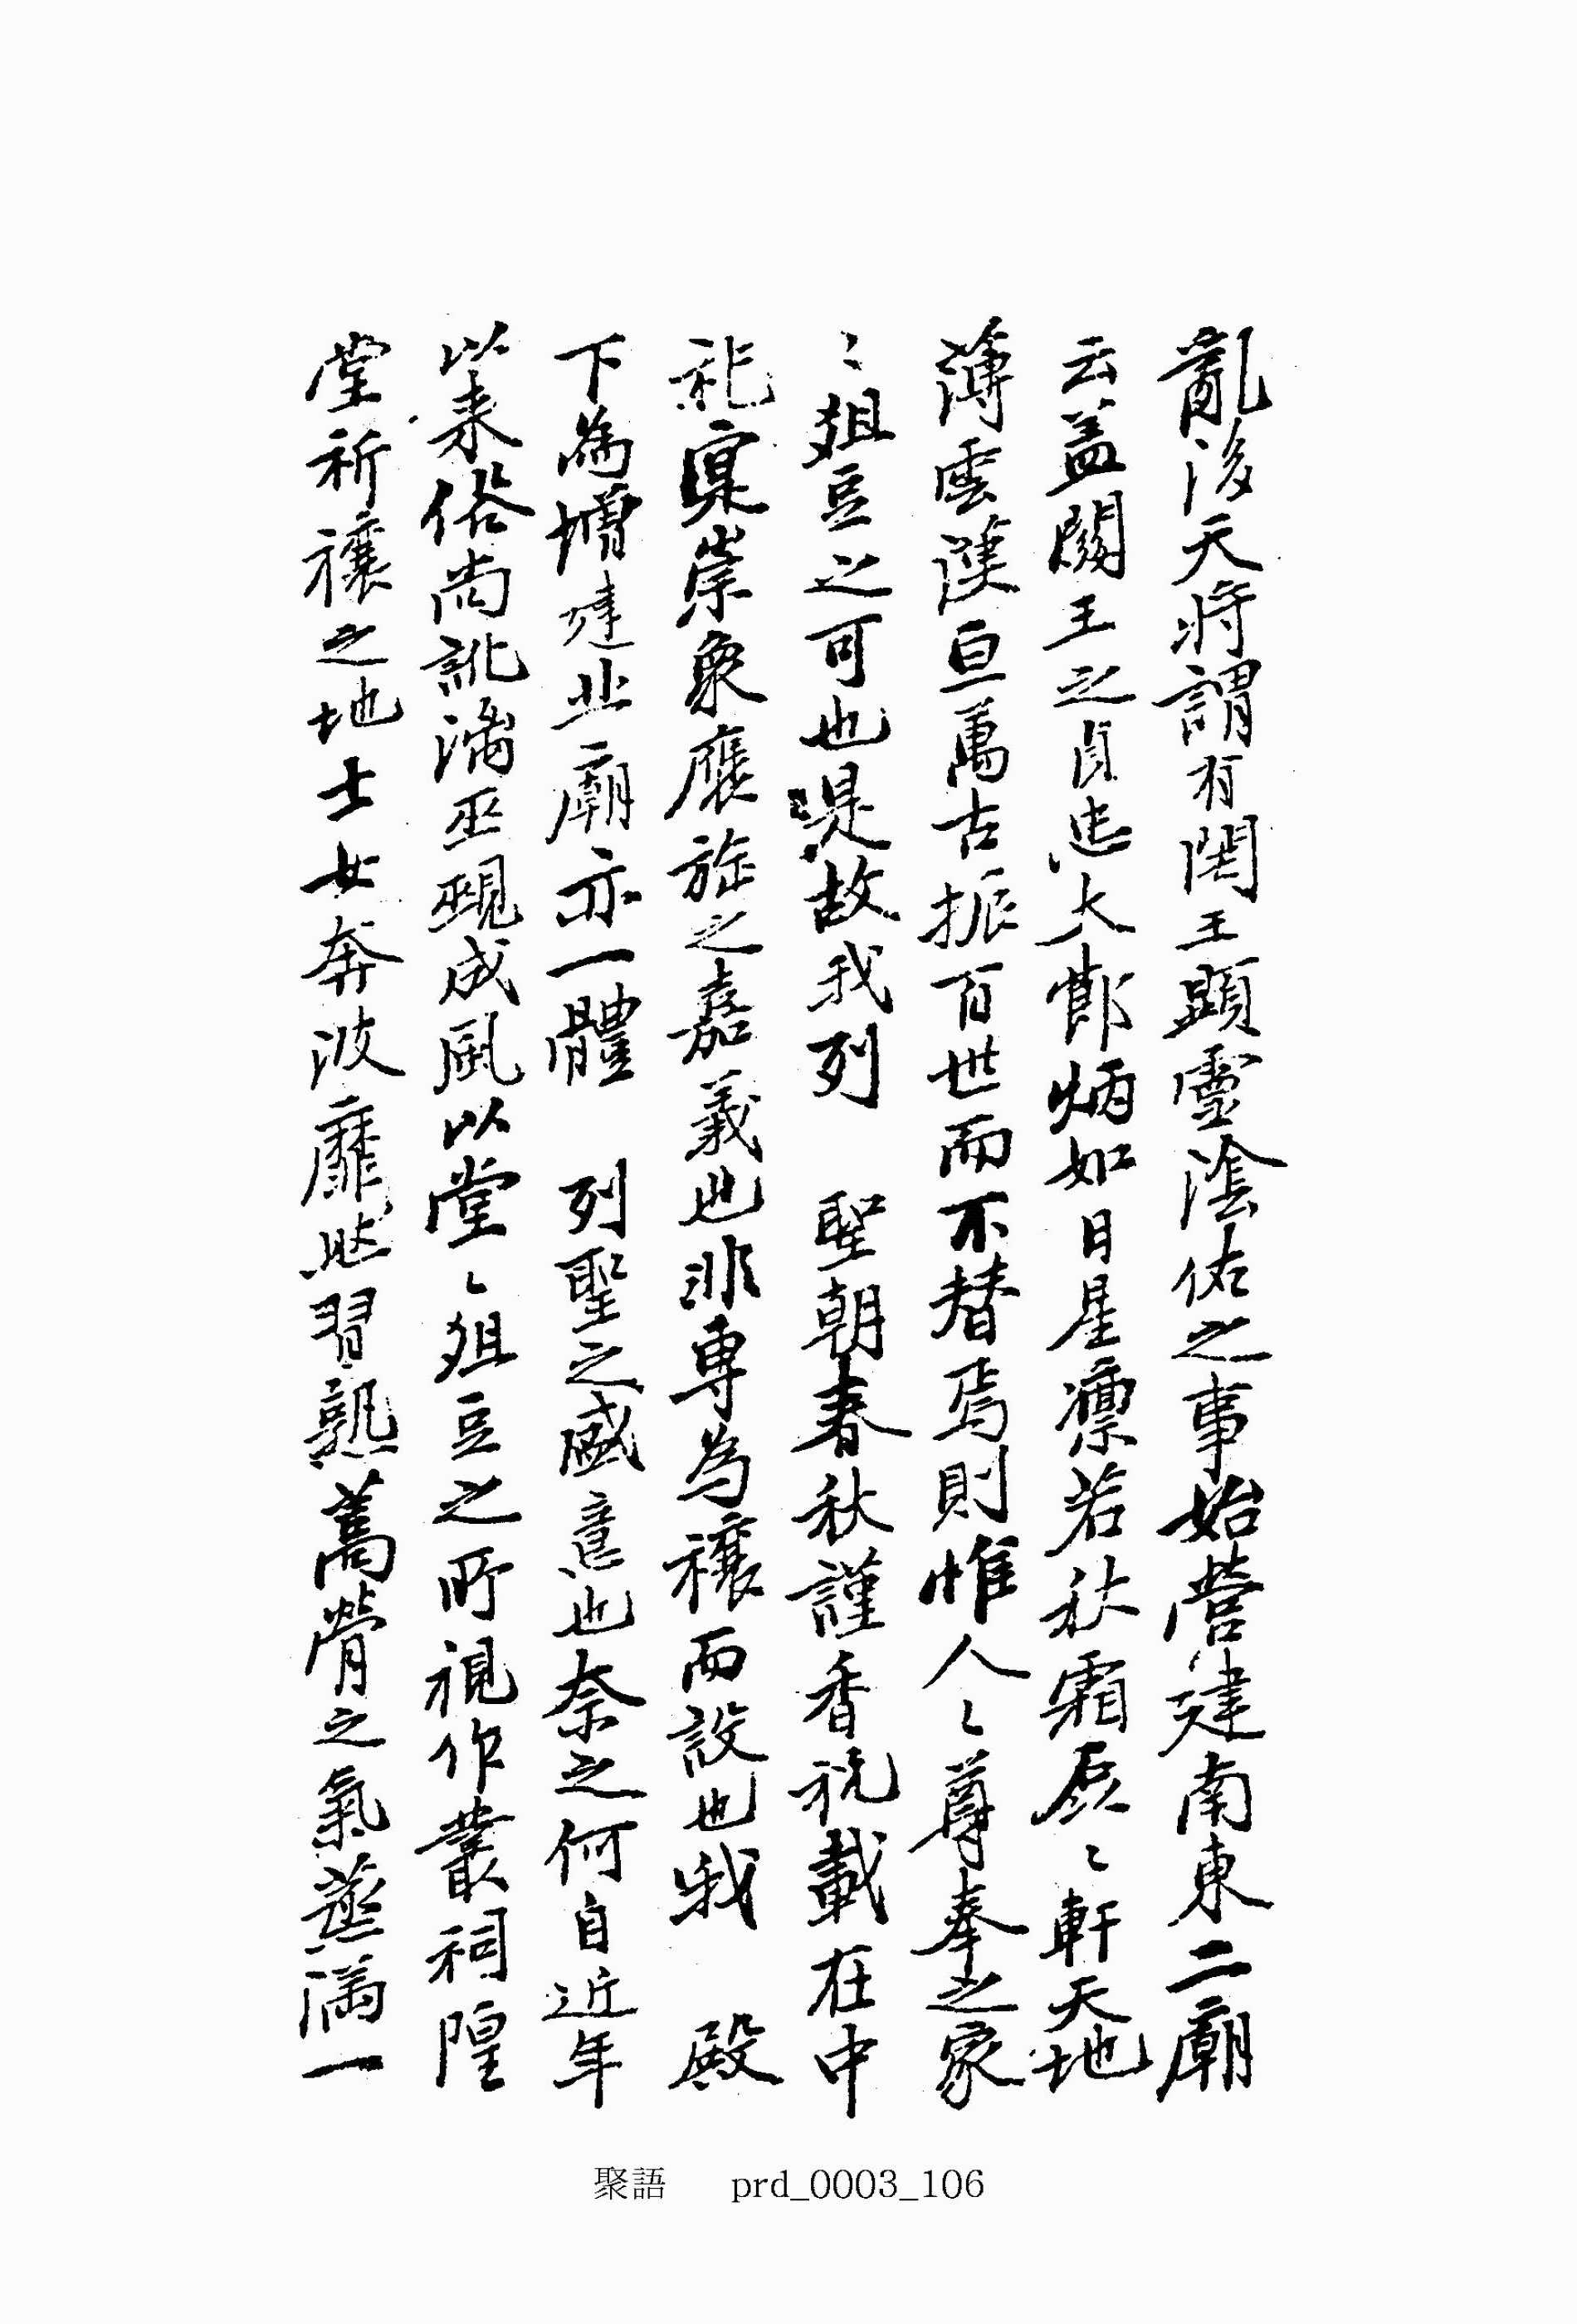 亂後天將謂有関王顕靈陰佑之事始營建南東二廟
云盖關王之貞忠大節炳如日星凛若秋霜磊〻軒天地
薄雲漢亘萬古振百世而不替焉則惟人〻尊奉之家
〻俎豆之可也是故我列 聖朝春秋謹香祝載在中
祀寔崇象應旋之嘉義也非專為禳而設也我 殿
下為增建北廟亦一體 列聖之盛意也奈之何自近年
以来俗尚訛淆巫覡成風以堂〻俎豆之所視作叢祠隍
堂祈禳之地士女奔波靡然習熟蒿膋之氣薰滿一
聚語 prd_0003_106